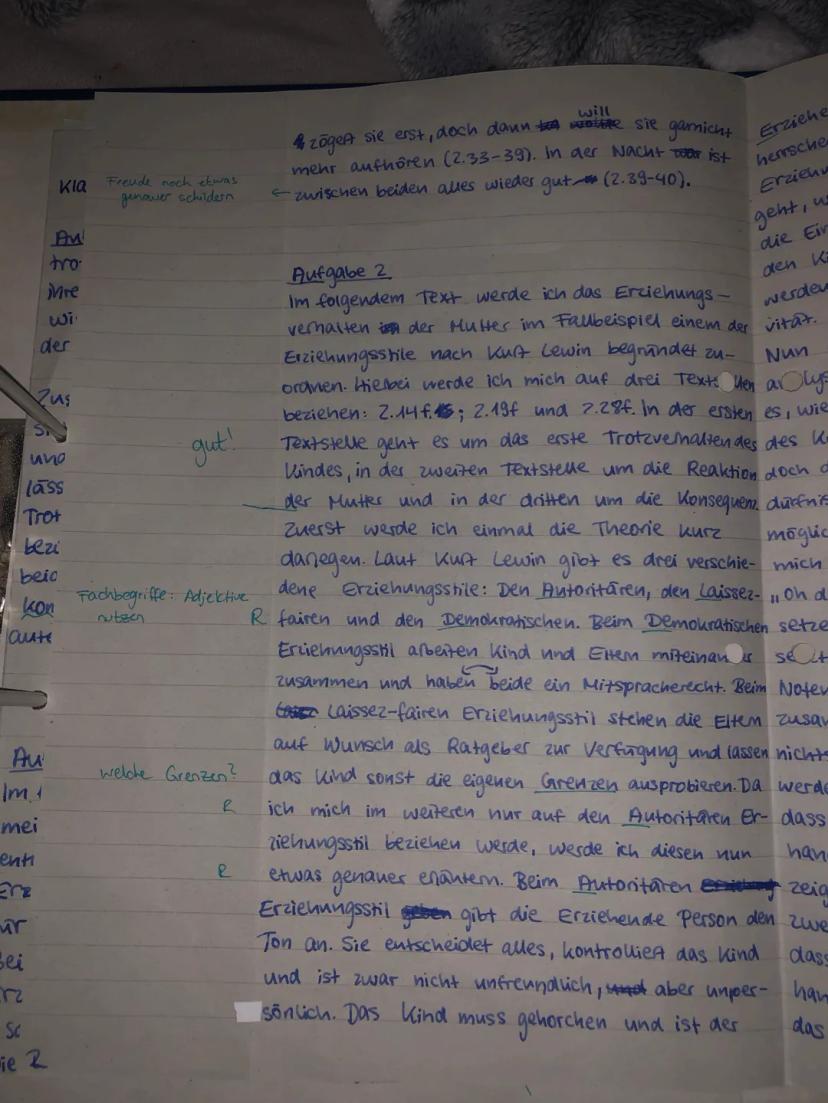 zögert sie erst, doch dann will sie garnicht
mehr aufhören (Z.33-39). In der Nacht ist
Freude noch etwas
genauer schildern
zwischen beiden alles wieder gut (Z.39-40).
Aufgabe 2
Im folgendem Text werde ich das Erziehungs-
verhalten der Mutter im Fallbeispiel einem der
Erziehungsstile nach Kurt Lewin begründet zu-
ordnen. Hierbei werde ich mich auf drei
beziehen: Z.14f.; Z.19f und Z.28f. In der ersten
gut!
Textstelle geht es um das erste Trotzverhalten des
Kindes, in der zweiten Textstelle um die Reaktion
der Mutter und in der dritten um die Konsequenz.
Zuerst werde ich einmal die Theorie kurz
darlegen. Laut Kurt Lewin gibt es drei verschie-
dene Erziehungsstile: Den Autoritären, den Laissez-
Fachbegriffe: Adjektive
nutzen
R fairen und den Demokratischen. Beim Demokratischen
Erziehungsstil arbeiten Kind und Eltern
zusammen und haben beide ein Mitspracherecht. Beim
Laissez-fairen Erziehungsstil stehen die Eltern
auf Wunsch als Ratgeber zur Verfügung und lassen
welche Grenzen?
das Kind sonst die eigenen Grenzen ausprobieren. Da
R ich mich im weiteren nur auf den Autoritären Er-
ziehungsstil beziehen werde, werde ich diesen nun
R etwas genauer erläutern. Beim Autoritären
Erziehungsstil gibt die Erziehende Person den
Ton an. Sie entscheidet alles, kontrolliert das Kind
und ist zwar nicht unfreundlich, aber unper-
sönlich. Das Kind muss gehorchen und ist der
Kla
tro-
ihre
wi
der
Zus
und
läss
Trot
bezi
beid
kon
Im
mei
Erz
die Ei
den Ki
werden
vität.
Nun
es, wie
des K
doch d
dürfnis
möglic
mich
setze
zusa
nicht
werde
dass
han
zeig
zwe
dass
han
das